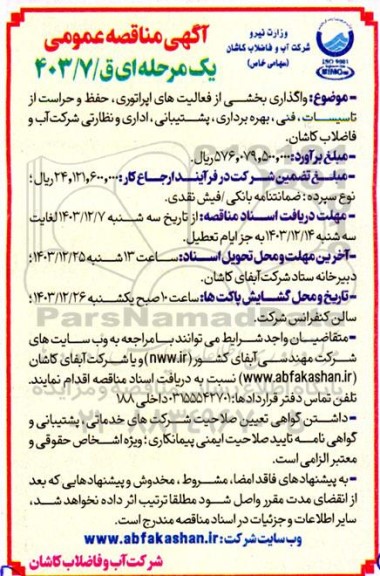 آگهی مناقصه عمومی
یک مرحله ای ق/۴۰۳/۷
وزارت نیرو
شرکت آب و فاضلاب کاشان
(سهامی خاص)
ISO 9001
- موضوع: واگذاری بخشی از فعالیت های اپراتوری، حفظ و حراست از
تاسیسات، فنی، بهره برداری، پشتیبانی، اداری و نظارتی شرکت آب و
فاضلاب کاشان.
- مبلغ برآورد: ۵۷۶,۰۷۹,۵۰۰,۰۰۰ ریال.
- مبلغ تضمین شرکت در فرآیند ارجاع کار: ۲۴,۱۲۱,۶۰۰,۰۰۰ ریال؛
نوع سپرده: ضمانتنامه بانکی/فیش نقدی.
- مهلت دریافت اسناد مناقصه: از تاریخ سه شنبه ۱۴۰۳/۱۲/۷ لغایت
سه شنبه ۱۴۰۳/۱۲/۱۴ به جز ایام تعطیل.
- آخرین مهلت و محل تحویل اسناد: ساعت ۱۳ شنبه ۱۴۰۳/۱۲/۲۵؛
دبیرخانه ستاد شرکت آبفای کاشان.
- تاریخ و محل گشایش پاکت ها: ساعت ۱۰ صبح یکشنبه ۱۴۰۳/۱۲/۲۶؛
سالن کنفرانس شرکت.
- متقاضیان واجد شرایط می توانند با مراجعه به وب سایت های
شرکت مهندسی آبفای کشور (nww.ir) و یا شرکت آبفای کاشان
(www.abfakashan.ir) نسبت به دریافت اسناد مناقصه اقدام نمایند.
تلفن تماس دفتر قراردادها: ۰۳۱۵۵۵۴۲۷۰۱ داخلی ۱۸۸
- داشتن گواهی تعیین صلاحیت شرکت های خدماتی، پشتیبانی و
گواهی نامه تایید صلاحیت ایمنی پیمانکاری؛ ویژه اشخاص حقوقی و
معتبر الزامی است.
- به پیشنهادهای فاقد امضا، مشروط، مخدوش و پیشنهادهایی که بعد
از انقضای مدت مقرر واصل شود مطلقا ترتیب اثر داده نخواهد شد،
سایر اطلاعات و جزئیات در اسناد مناقصه مندرج است.
وب سایت شرکت: www.abfakashan.ir
شرکت آب و فاضلاب کاشان